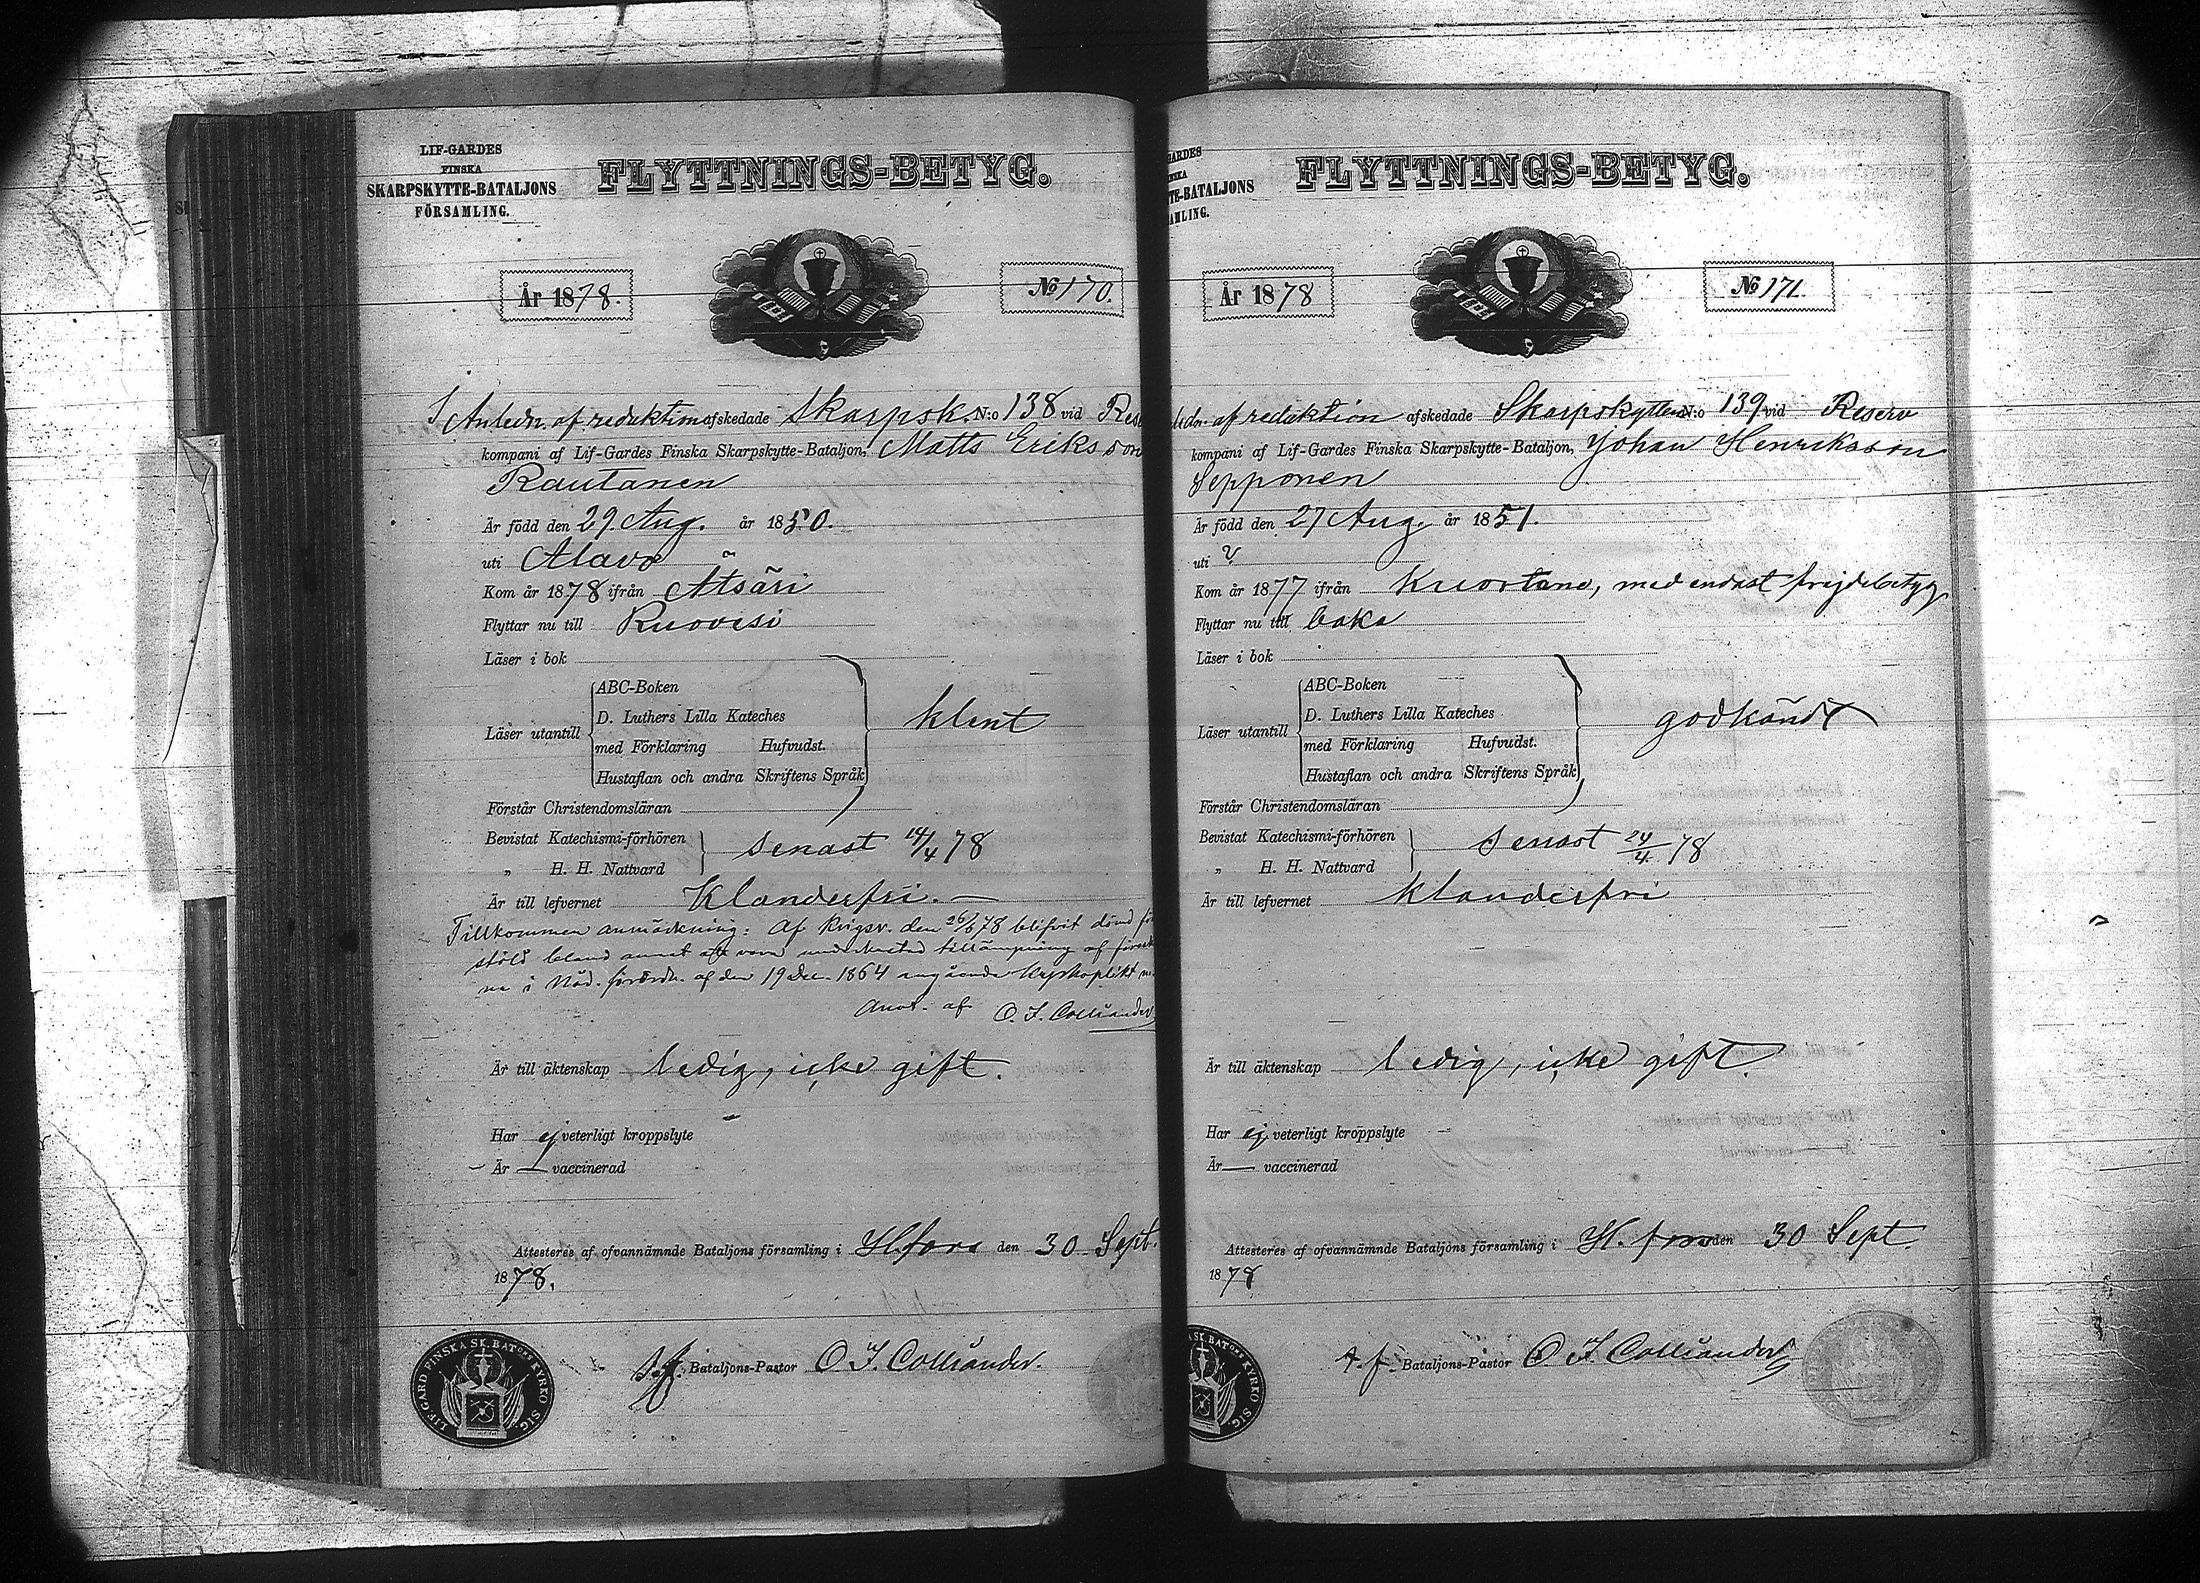 LIF-GARDES
FINSKA
SKARPSKYTTE-BATALJONS
FÖRSAMLING.
FLYTTNINGS-BETYG.
År 1878.
№ 170.
I Anledn. af reduktion afskedade Skarpsk. N:o 138 vid Res
kompani af Lif-Gardes Finska Skarpskytte-Bataljon, Matts Eriksson
Rautanen
Är född den 29 Aug. år 1850.
uti Alavo
Kom år 1878 ifrån Ätsäri
Flyttar nu till Ruovesi
Läser i bok
Läser utantill
ABC-Boken
D. Luthers Lilla Kateches
med Förklaring Hufvudst.
Hustaflan och andra Skriftens Språk
klent
Förstår Christendomsläran
Bevistat Katechismi-förhören
„ H. H. Nattvard
senast 14/4 78
Är till lefvernet Klanderfri.
Tillkommen anmärkning: Af Krigsr. den 26/6 78 blifvit dömd fö
stöld bland annat att vara underkastad tillämpning af föresk
na i Nåd. förordn. af den 19 Dec. 1864 angående Kyrkoplikt m.
Anot. af O. I. Colliander
Är till äktenskap ledig, icke gift.
Har ej veterligt kroppslyte
Är — vaccinerad
Attesteres af ofvannämnde Bataljons församling i H.fors den 30 Sept.
1878.
LIF. GARD. FINSKA SK. BAT:ons KYRKO SIG.
t. f. Bataljons-Pastor O. I. Colliander.
GARDES
TE-BATALJONS
AMLING.
FLYTTNINGS-BETYG.
År 1878
№ 171.
ledn. af reduktion afskedade Skarpskytten N:o 139 vid Reserv
kompani af Lif-Gardes Finska Skarpskytte-Bataljon, Johan Henriksson
Sepponen
Är född den 27 Aug. år 1851.
uti ?
Kom år 1877 ifrån Kuortane, med endast frejdebetyg
Flyttar nu till
Läser i bok
Läser utantill
ABC-Boken
D. Luthers Lilla Kateches
med Förklaring Hufvudst.
Hustaflan och andra Skriftens Språk
godkändt
Förstår Christendomsläran
Bevistat Katechismi-förhören
„ H. H. Nattvard
senast 24/4 78
Är till lefvernet klanderfri
Är till äktenskap ledig, icke gift.
Har ej veterligt kroppslyte
Är — vaccinerad
Attesteres af ofvannämnde Bataljons församling i H. fors den 30 Sept.
1878
SK. BAT:ons KYRKO SIG.
t. f. Bataljons-Pastor O. I. Colliander